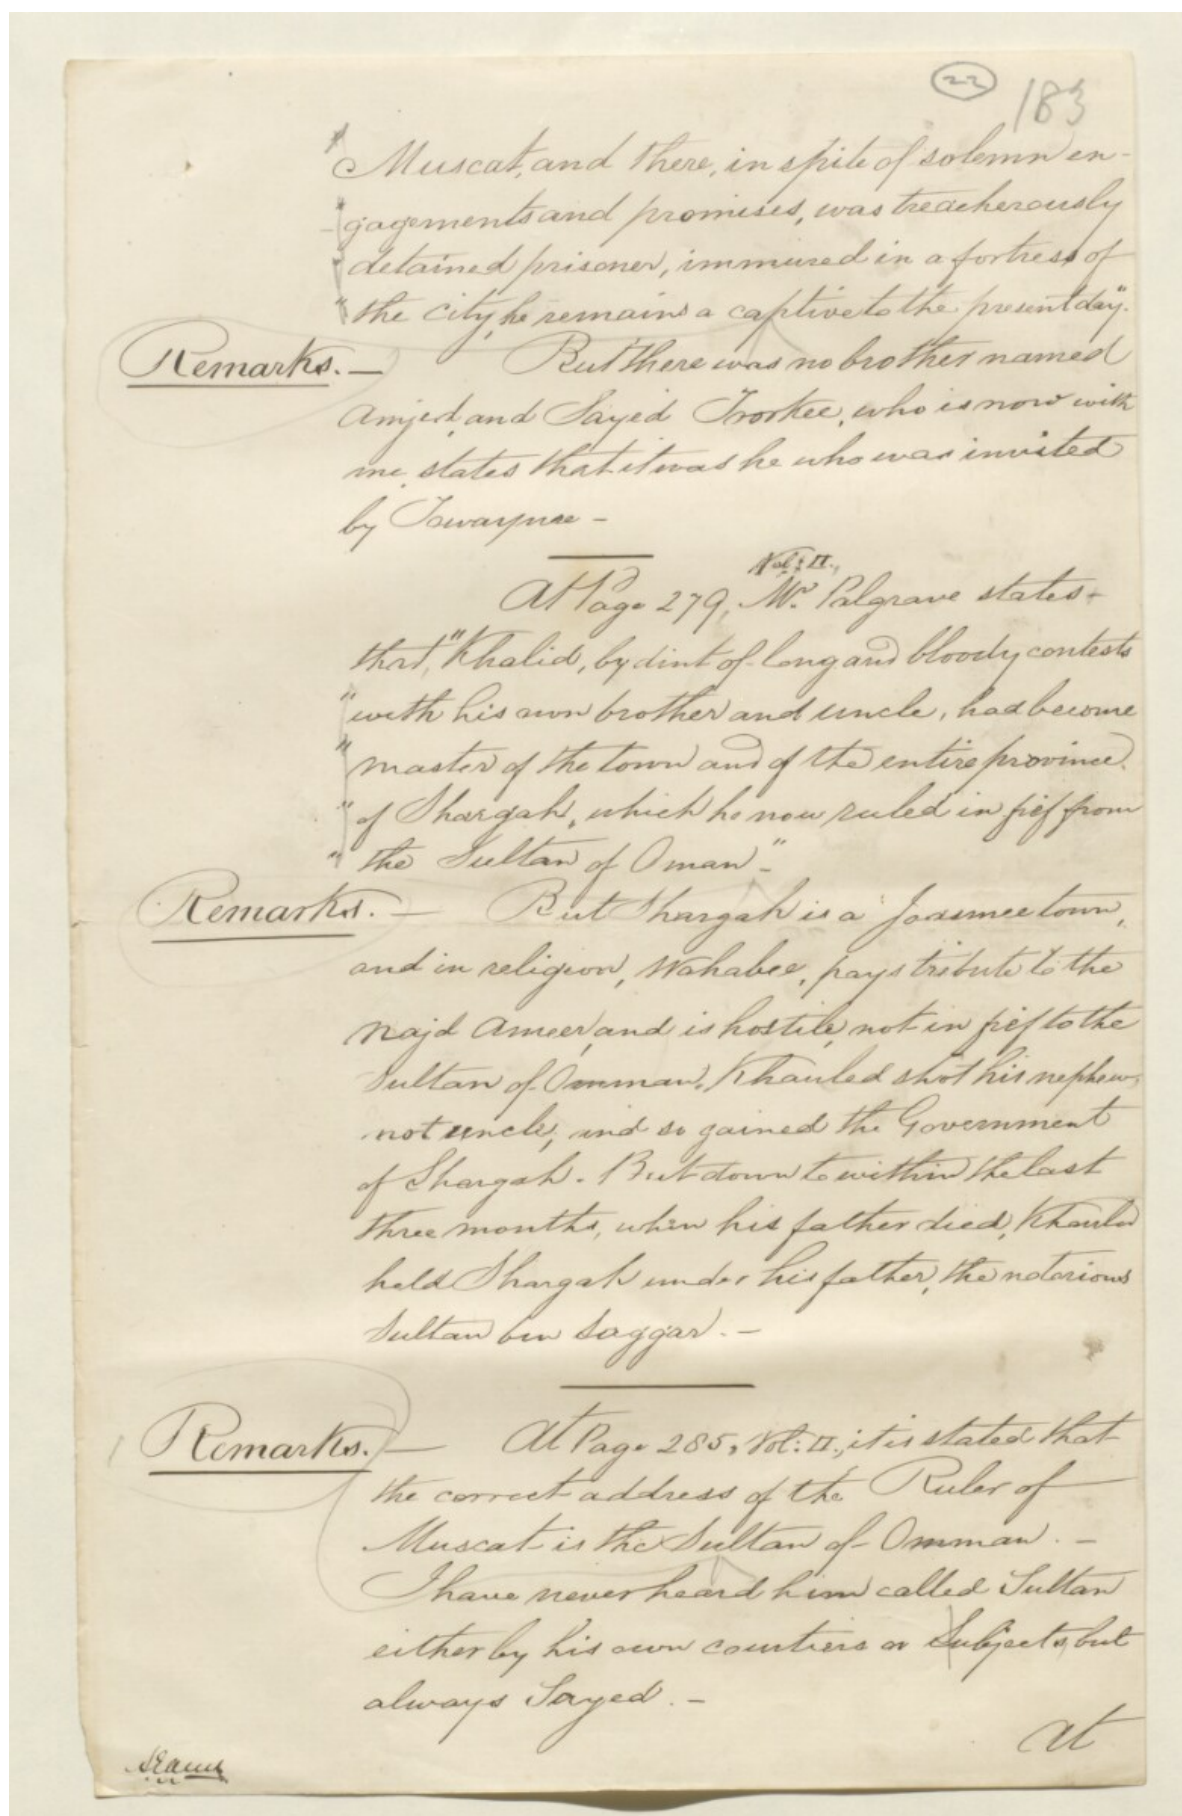 22
183
" Muscat, and there, in spite of solemn en-
" gagements and promises, was treacherously
" detained prisoner, immured in a fortress of
" the city, he remains a captive to the present day."
Remarks. — But there was no brother named
Amjed, and Sayed Toorkee, who is now with
me, states that it was he who was invited
by Towaynee -
Vol: II.,
At Page 279, Mr. Palgrave states -
that, "Khalid, by dint of long and bloody contests
" with his own brother and uncle, had become
" master of the town and of the entire province
" of Shargah, which he now ruled in fief from
" the Sultan of Oman" -
Remarks. — But Shargah is a Joasmee town,
and in religion, Wahabee, pays tribute to the
Najd Ameer, and is hostile, not in fief to the
Sultan of Omman. Khauled shot his nephew,
not uncle, and so gained the Government
of Shargah. But down to within the last
three months, when his father died, Khauled
held Shargah under his father, the notorious
Sultan bin Saggar. -
Remarks. — At Page 285, Vol: II., it is stated that
the correct address of the Ruler of
Muscat is the Sultan of Omman. -
I have never heard him called Sultan
either by his own courtiers or Subjects, but
always Sayed. -
At